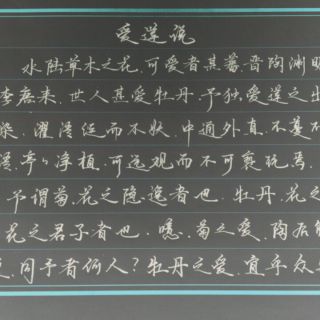 爱莲说
水陆草木之花,可爱者甚蕃。晋陶渊明
李唐来,世人甚爱牡丹。予独爱莲之出
染,濯清涟而不妖,中通外直,不蔓不
清,亭亭净植,可远观而不可亵玩焉。
予谓菊,花之隐逸者也,牡丹,花之
花之君子者也。噫,菊之爱,陶后鲜
爱,同予者何人?牡丹之爱,宜乎众